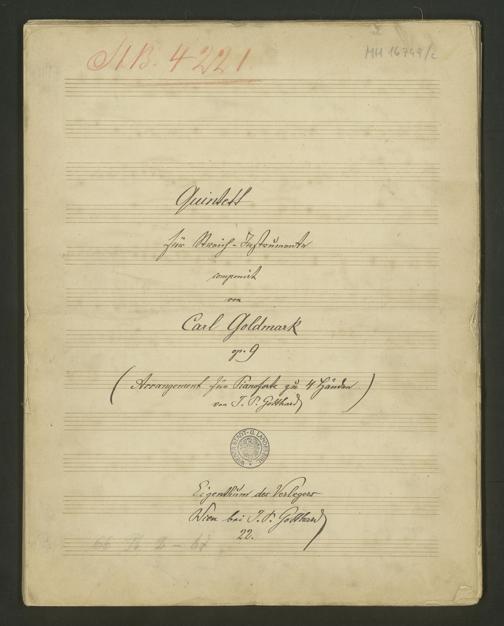 St.B. 4221.
MH 16749/c
Quintett
für Streich-Instrumente
componirt
von
Carl Goldmark
op. 9
(Arrangement für Pianoforte zu 4 Händen)
von J. P. Gotthard
Eigenthum des Verlegers
Wien bei J. P. Gotthard
22.